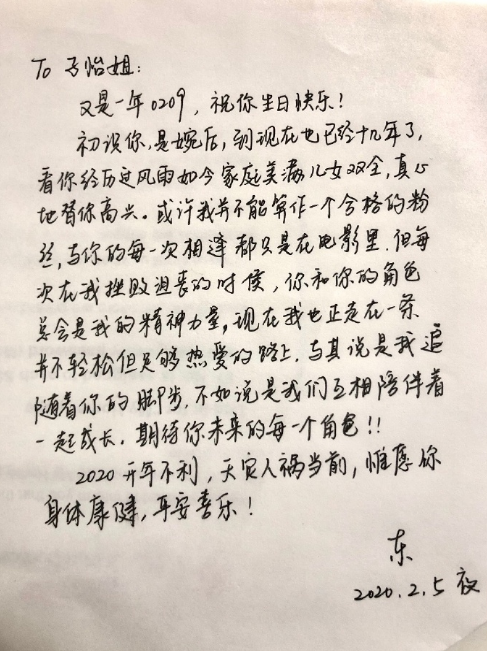 To 子怡姐：
又是一年0209，祝你生日快乐！
初识你，是婉后，到现在也已经十几年了，
看你经历过风雨如今家庭美满儿女双全，真心
地替你高兴。或许我并不能算作一个合格的粉
丝，与你的每一次相逢都只是在电影里，但每
次在我挫败沮丧的时候，你和你的角色
总会是我的精神力量，现在我也正走在一条
并不轻松但足够热爱的路上，与其说是我追
随着你的脚步，不如说是我们互相陪伴着
一起成长，期待你未来的每一个角色！！
2020开年不利，天灾人祸当前，惟愿你
身体康健，平安喜乐！
东
2020.2.5 夜